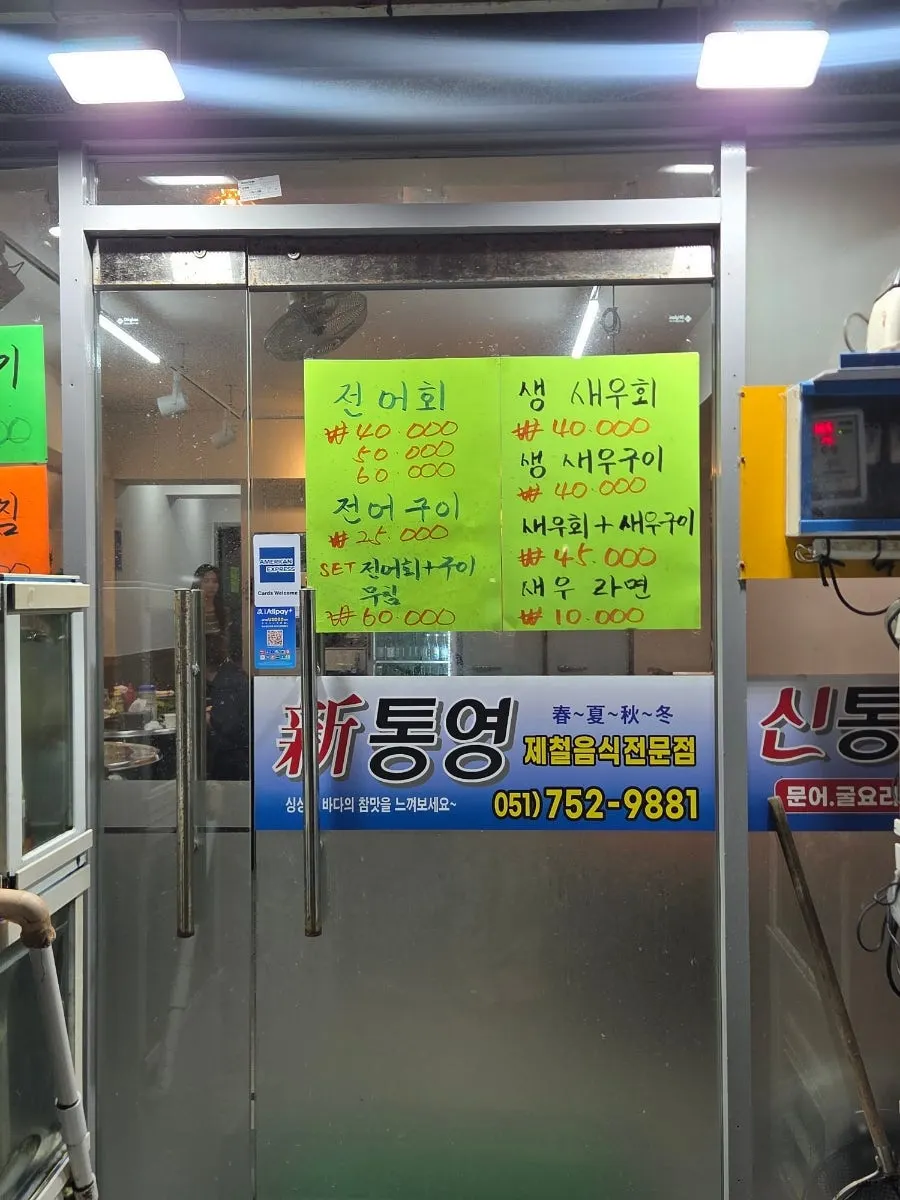 전어회
₩40.000
50.000
60.000
전어구이
₩25.000
SET 전어회+구이
무침
₩60.000
생 새우회
₩40.000
생 새우구이
₩40.000
새우회+새우구이
₩45.000
새우 라면
₩10.000
이
침
AMERICAN EXPRESS
Cards Welcome
Alipay+
新통영
春~夏~秋~冬
제철음식전문점
바다의 참맛을 느껴보세요~
051)752-9881
신통
문어.굴요리